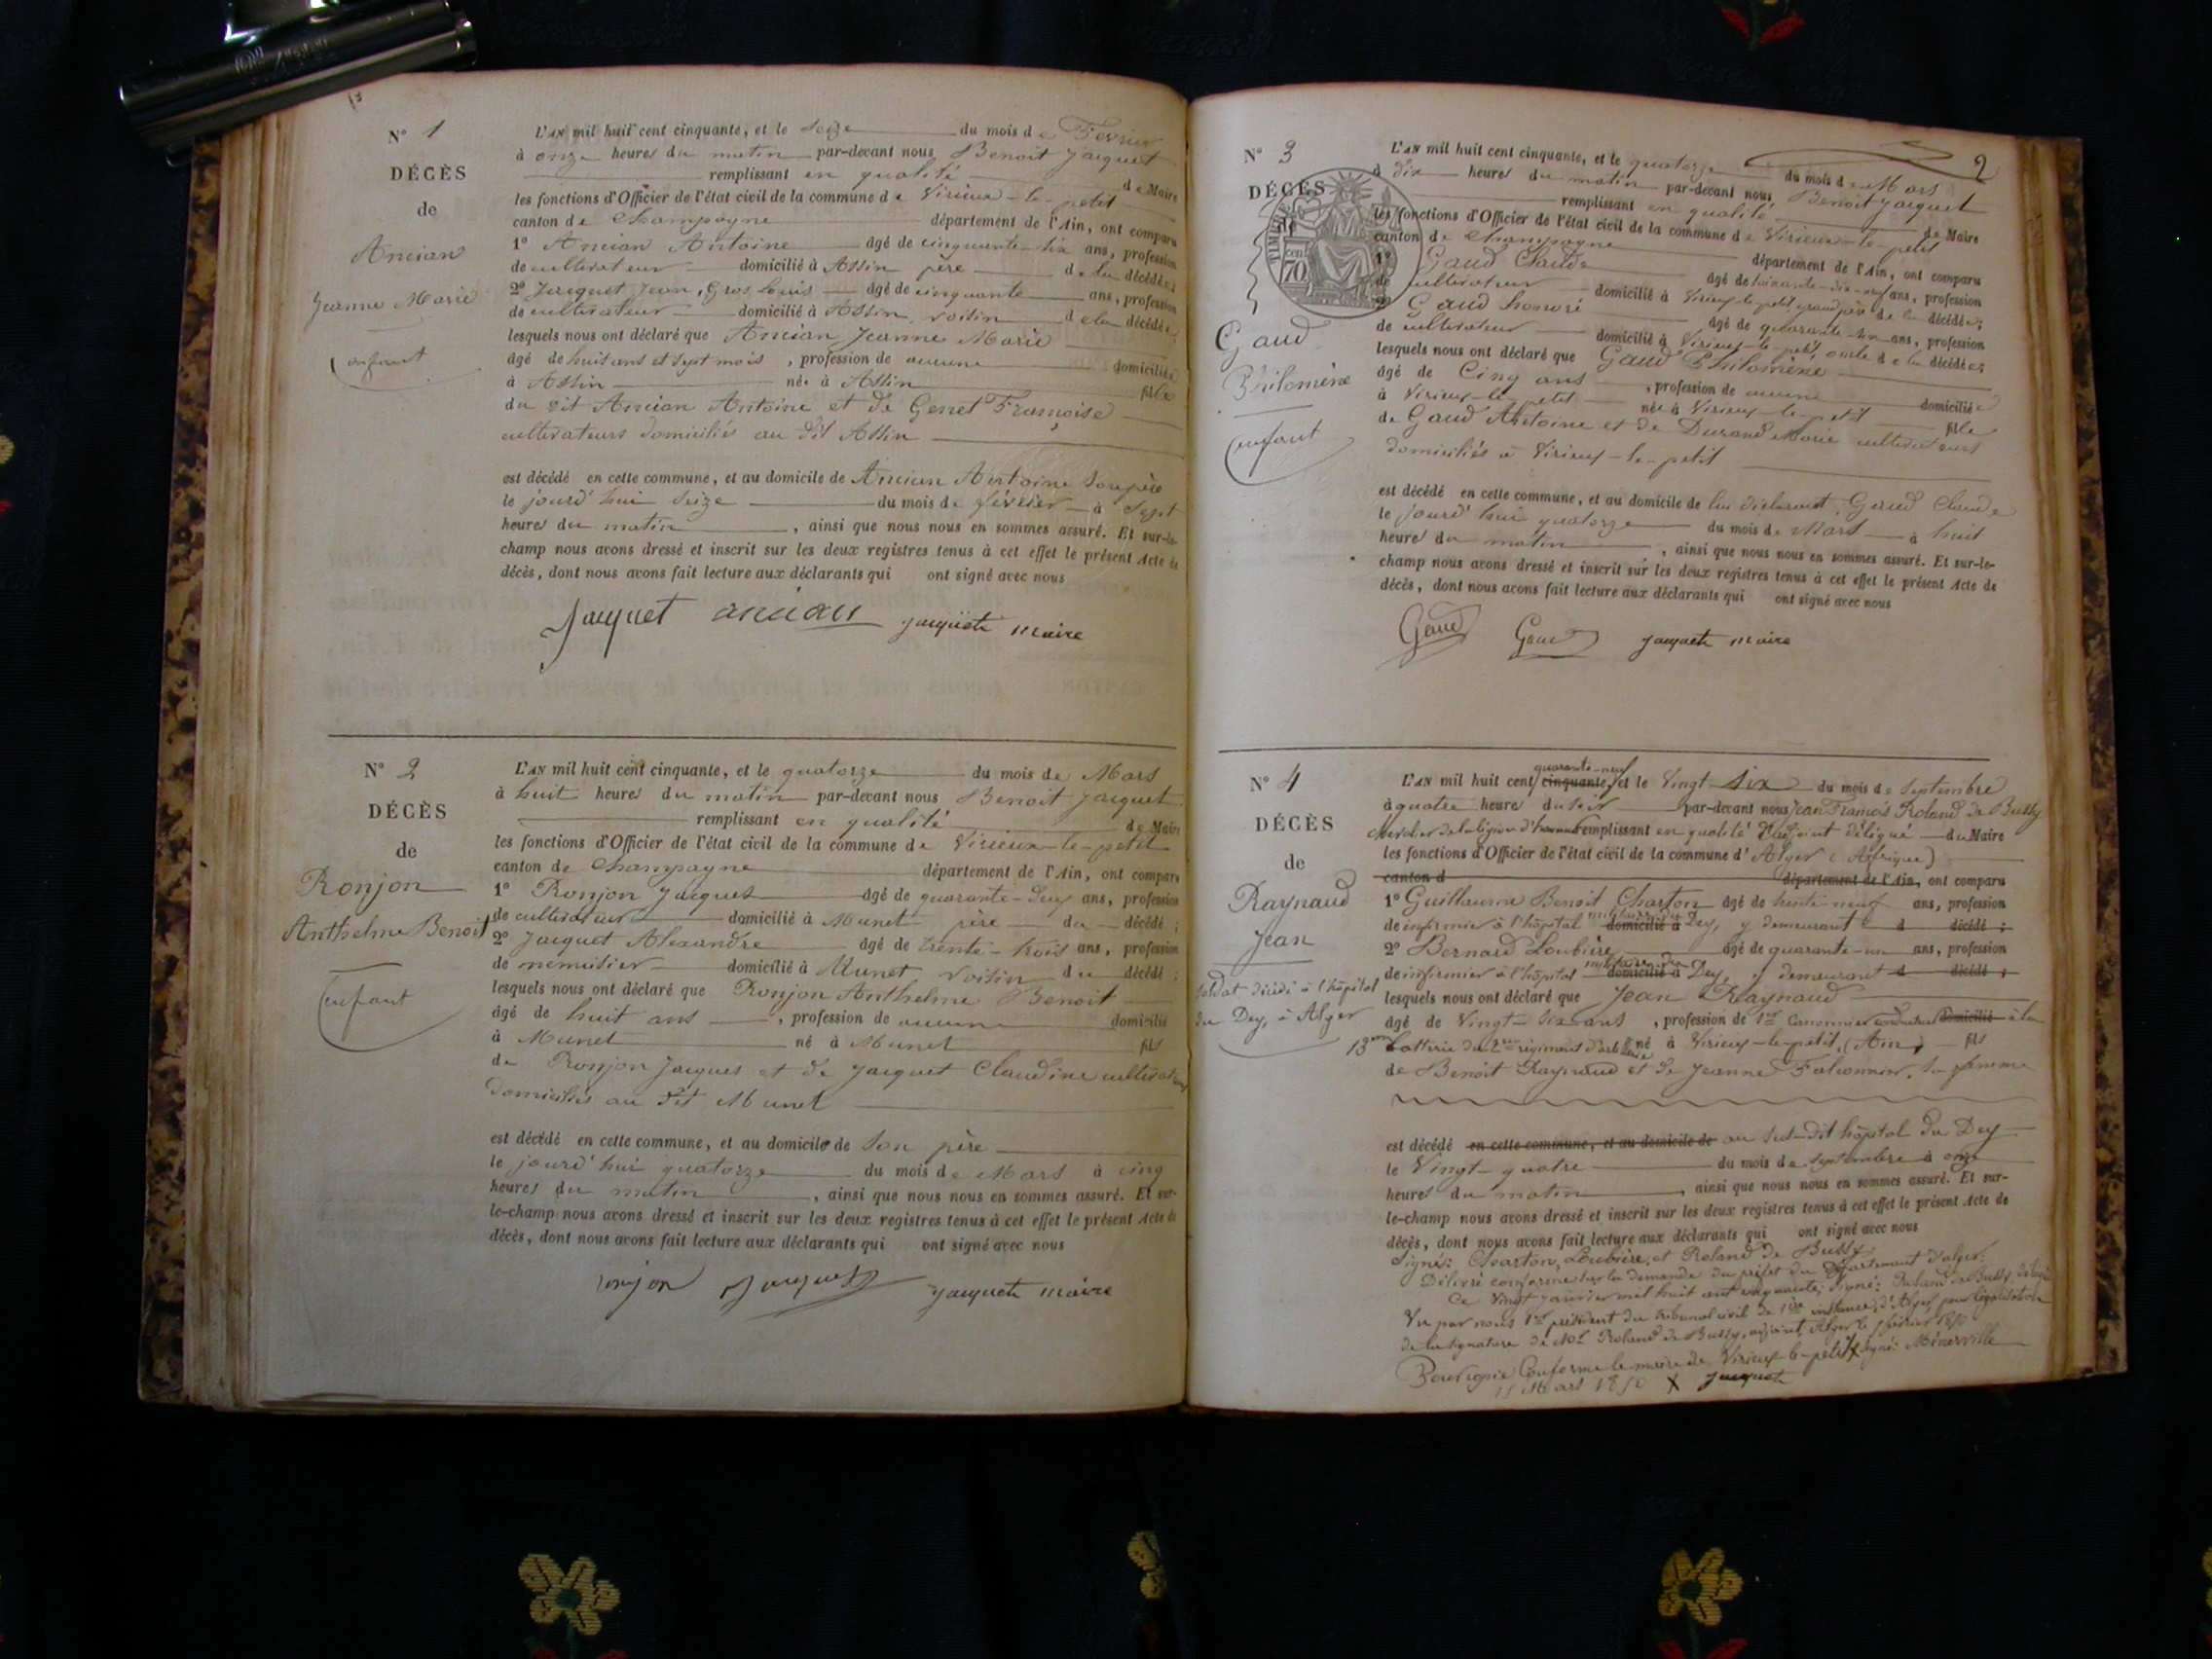 N° 1
DÉCÈS
de
Ancian
Jeanne Marie
enfant
L'AN mil huit cent cinquante, et le seize du mois de Fevrier
à onze heures du matin par-devant nous Benoit Jacquet
remplissant en qualité de Maire
les fonctions d'Officier de l'état civil de la commune de Virieux-le-petit
canton de Champagne département de l'Ain, ont comparu
1° Ancian Antoine âgé de cinquante-six ans, profession
de cultivateur domicilié à Assin père de la décédée;
2° Jacquet Jean, Gros Louis âgé de cinquante ans, profession
de cultivateur domicilié à Assin, voisin de la décédée,
lesquels nous ont déclaré que Ancian Jeanne Marie
âgé de huit ans et sept mois, profession de aucune domiciliée
à Assin née à Assin fille
du dit Ancian Antoine et de Genet Françoise
cultivateurs domiciliés au dit Assin
est décédé en cette commune, et au domicile de Ancian Antoine son père
le jourd'hui seize du mois de février à sept
heures du matin, ainsi que nous nous en sommes assuré. Et sur-le-
champ nous avons dressé et inscrit sur les deux registres tenus à cet effet le présent Acte de
décès, dont nous avons fait lecture aux déclarants qui ont signé avec nous
Jacquet ancian Jacquet maire
N° 2
DÉCÈS
de
Ronjon
Anthelme Benoit
enfant
L'AN mil huit cent cinquante, et le quatorze du mois de Mars
à huit heures du matin par-devant nous Benoit Jacquet
remplissant en qualité de Maire
les fonctions d'Officier de l'état civil de la commune de Virieux-le-petit
canton de Champagne département de l'Ain, ont comparu
1° Ronjon Jacques âgé de quarante-deux ans, profession
de cultivateur domicilié à Munet père du décédé;
2° Jacquet Alexandre âgé de trente-trois ans, profession
de menuisier domicilié à Munet voisin du décédé;
lesquels nous ont déclaré que Ronjon Anthelme Benoit
âgé de huit ans, profession de aucune domicilié
à Munet né à Munet fils
de Ronjon Jacques et de Jacquet Claudine cultivateurs
domiciliés au dit Munet
est décédé en cette commune, et au domicile de son père
le jourd'hui quatorze du mois de Mars à cinq
heures du matin, ainsi que nous nous en sommes assuré. Et sur-
le-champ nous avons dressé et inscrit sur les deux registres tenus à cet effet le présent Acte de
décès, dont nous avons fait lecture aux déclarants qui ont signé avec nous
ronjon Jacquet Jacquet maire
2
N° 3
DÉCÈS
de
TIMBRE
70
Gaud
Philomène
enfant
L'AN mil huit cent cinquante, et le quatorze du mois de Mars
à dix heures du matin par-devant nous Benoit Jacquet
remplissant en qualité de Maire
les fonctions d'Officier de l'état civil de la commune de Virieux-le-petit
canton de Champagne département de l'Ain, ont comparu
1° Gaud Claude âgé de soixante-dix-neuf ans, profession
de cultivateur domicilié à Virieux-le-petit, grand père de la décédée;
2° Gaud honoré âgé de quarante-un ans, profession
de cultivateur domicilié à Virieux-le-petit, oncle de la décédée;
lesquels nous ont déclaré que Gaud Philomène
âgé de Cinq ans, profession de aucune domiciliée
à Virieux-le-petit née à Virieux-le-petit fille
de Gaud Antoine et de Durand Marie cultivateurs
domiciliés à Virieux-le-petit
est décédé en cette commune, et au domicile de lui déclarant, Gaud Claude
le jourd'hui quatorze du mois de Mars à huit
heures du matin, ainsi que nous nous en sommes assuré. Et sur-le-
champ nous avons dressé et inscrit sur les deux registres tenus à cet effet le présent Acte de
décès, dont nous avons fait lecture aux déclarants qui ont signé avec nous
Gaud Gaud Jacquet maire
N° 4
DÉCÈS
de
Raynaud
Jean
soldat décédé à l'hôpital
du Dey, à Alger
quarante-neuf
L'AN mil huit cent cinquante, et le Vingt six du mois de septembre
à quatre heure du soir par-devant nous Jean François Roland de Bussy
chevalier de la légion d'honneur remplissant en qualité d'adjoint délégué du Maire
les fonctions d'Officier de l'état civil de la commune d'Alger (Afrique)
canton d département de l'Ain, ont comparu
1° Guillaume Benoit Charton âgé de trente-neuf ans, profession
de infirmier à l'hôpital militaire du domicilié à Dey, y demeurant d décédé;
2° Bernard Loubière âgé de quarante-un ans, profession
de infirmier à l'hôpital militaire du domicilié à Dey, y demeurant d décédé;
lesquels nous ont déclaré que Jean Raynaud
âgé de Vingt-six ans, profession de 1er Canonnier conducteur domicilié à la
13me batterie du 2me régiment d'artillerie né à Virieux-le-petit, (Ain) fils
de Benoit Raynaud et de Jeanne Falconnier, sa femme
est décédé en cette commune, et au domicile de au sus-dit hôpital du Dey
le Vingt-quatre du mois de septembre à onze
heures du matin, ainsi que nous nous en sommes assuré. Et sur-
le-champ nous avons dressé et inscrit sur les deux registres tenus à cet effet le présent Acte de
décès, dont nous avons fait lecture aux déclarants qui ont signé avec nous
signé: Charton, Loubière, et Roland de Bussy.
Délivré conforme sur la demande du préfet du département d'alger.
Ce Vingt janvier mil huit cent cinquante; signé: Roland de Bussy,
Vu par nous 1er président du tribunal civil de 1ère instance, d'Alger, pour légalisation
de la signature de Mr Roland de Bussy, adjoint, Alger le février 1850
signé: Ménerville
Pour copie Conforme le maire de Virieux-le-petit
15 Mars 1850 Jacquet